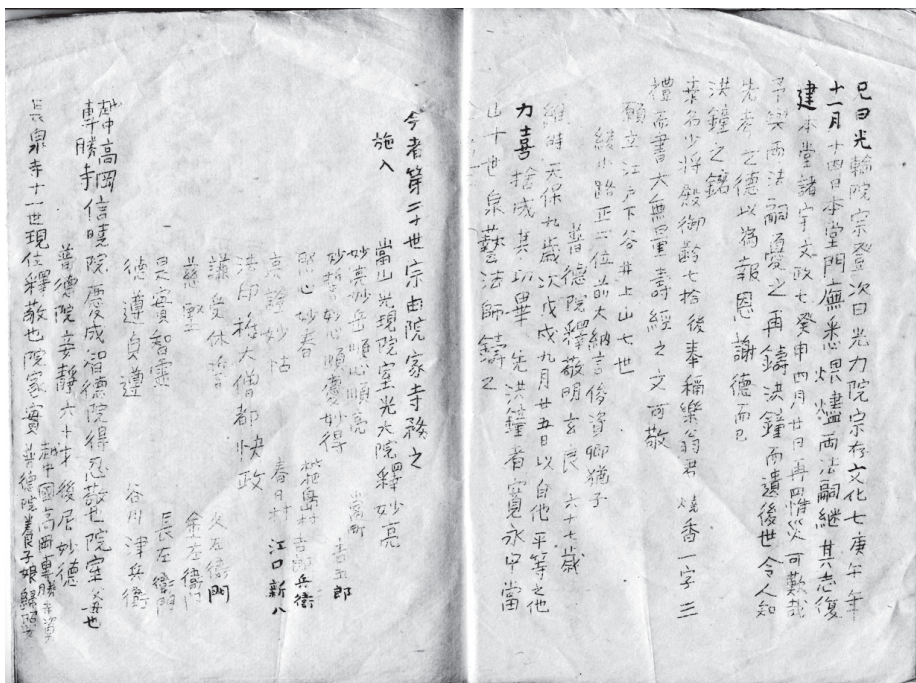 兄曰光輪院宗登次曰光力院宗存文化七庚午年
十一月十四日本堂門廡悉畏燼両法嗣継其志復
建本堂諸宇文政七癸申四月廿日再罹災可歎哉
予与両法嗣憂之再鋳洪鐘而遺後世令人知
先考之德以為報恩謝德而已
洪鐘之銘
桑名少将殿御齢七拾後奉稱樂翁君燒香一字三
禮而書大無量壽經之文可敬
願主江戸下谷井上山七世
綾小路正二位前大納言俊資卿猶子
普德院釋敬明玄良 六十七歳
維時天保九歳次戊戌九月廿五日以自他平等之他
力喜捨成其功畢 先洪鐘者寛永中當
山十世泉藝法師鋳之
今者第二十世宗函院家寺務之
施入
當山光現院室光大院釋妙亮
妙亮妙岳順心順亮
妙哲妙心順慶妙得
照心妙春
真證妙怙
法印権大僧都快政
謙受休誓
慈堅
旦實智靈
德遵貞遵
當町 吉五郎
枇杷島村吉郎兵衛
春日村 江口新八
又左衛門
金左衛門
長左衛門
谷川津兵衛
越中高岡信曉院慶成智德院得忍敬也院室父母也
専勝寺
普德院妾靜六十才後尼妙德
越中國高岡専勝寺資
長泉寺十一世現住釋敬也院家實 普德院養良子娘歸